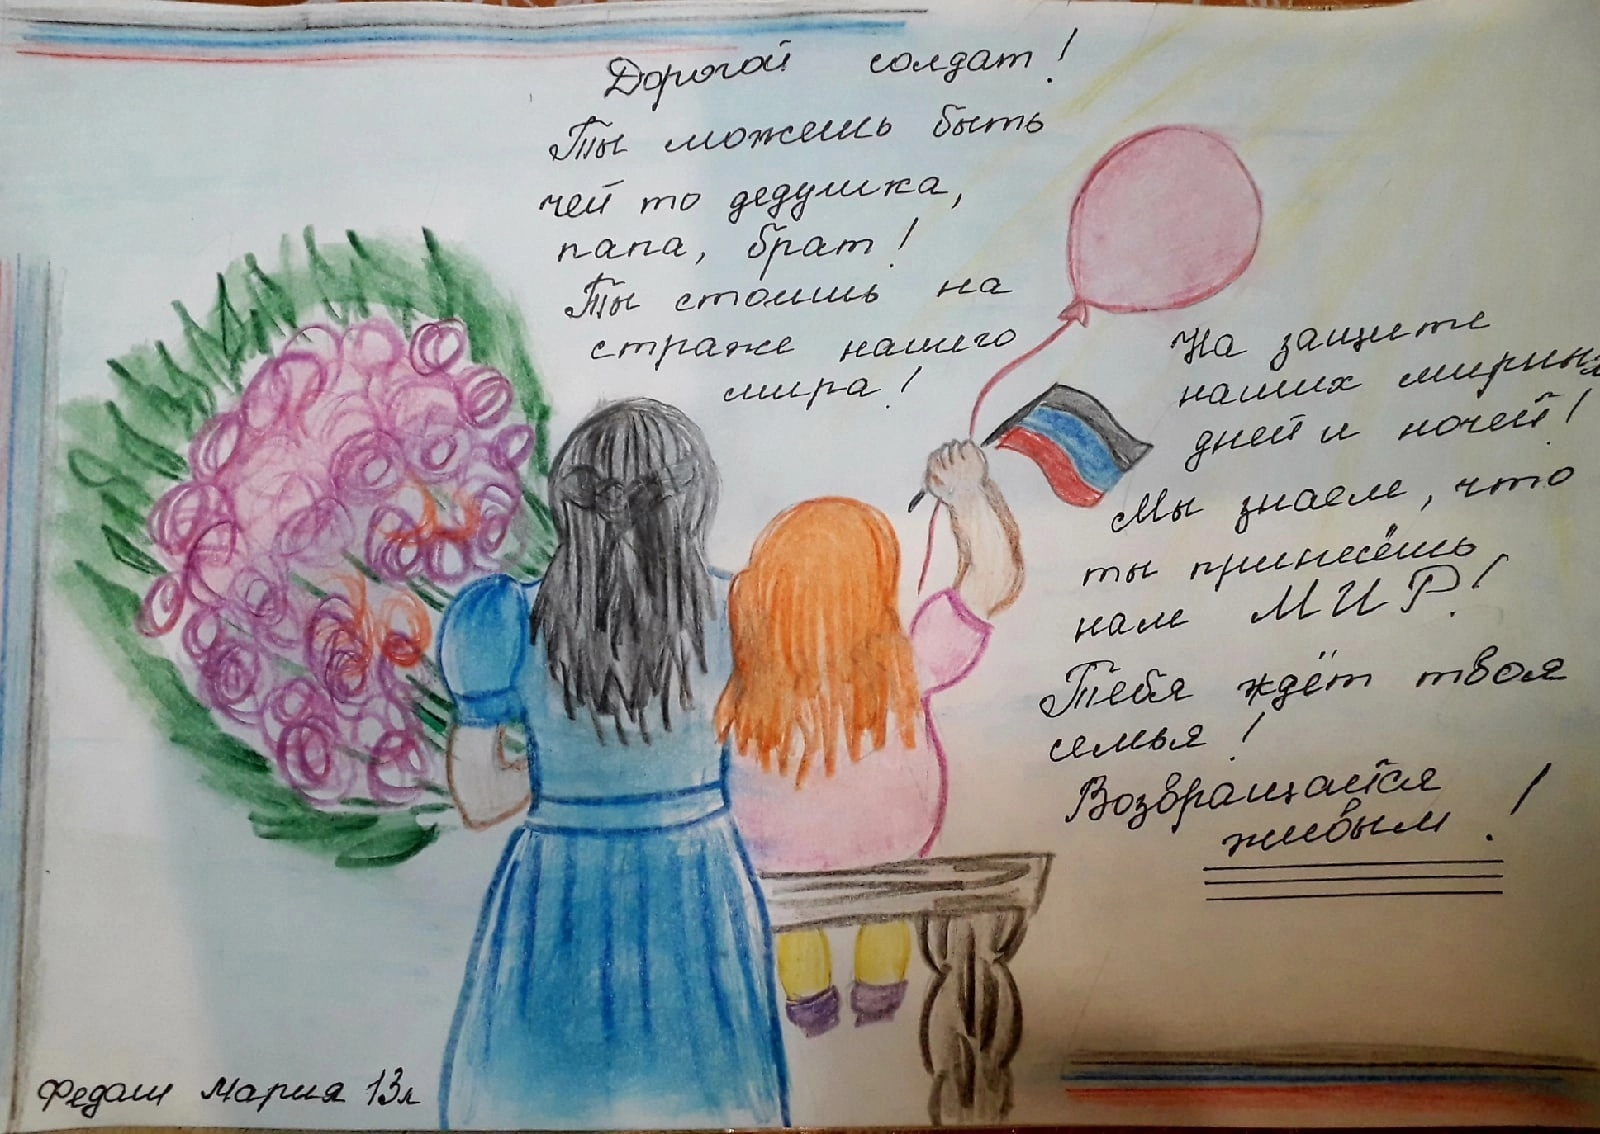 Дорогой солдат!
Ты можешь быть
чей то дедушка,
папа, брат!
Ты стоишь на
страже нашего
мира!
На защите
наших мирных
дней и ночей!
Мы знаем, что
ты принесёшь
нам МИР!
Тебя ждёт твоя
семья!
Возвращайся
живым!
Федаш Мария 13л